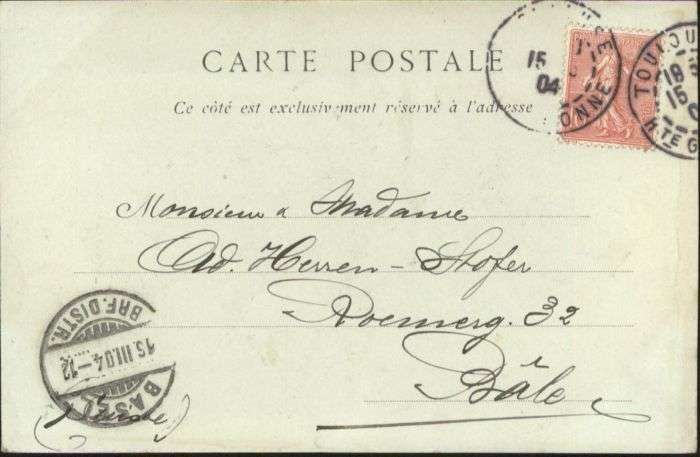 CARTE POSTALE
Ce côté est exclusivement réservé à l'adresse
15
04
ONNE
TOULOU
18
15
HTE G
Monsieur & Madame
Ad. Herren-Stofer
Roemerg. 32
Bâle
(Suisse)
BRF. DISTR.
15.III.04-12
BASEL